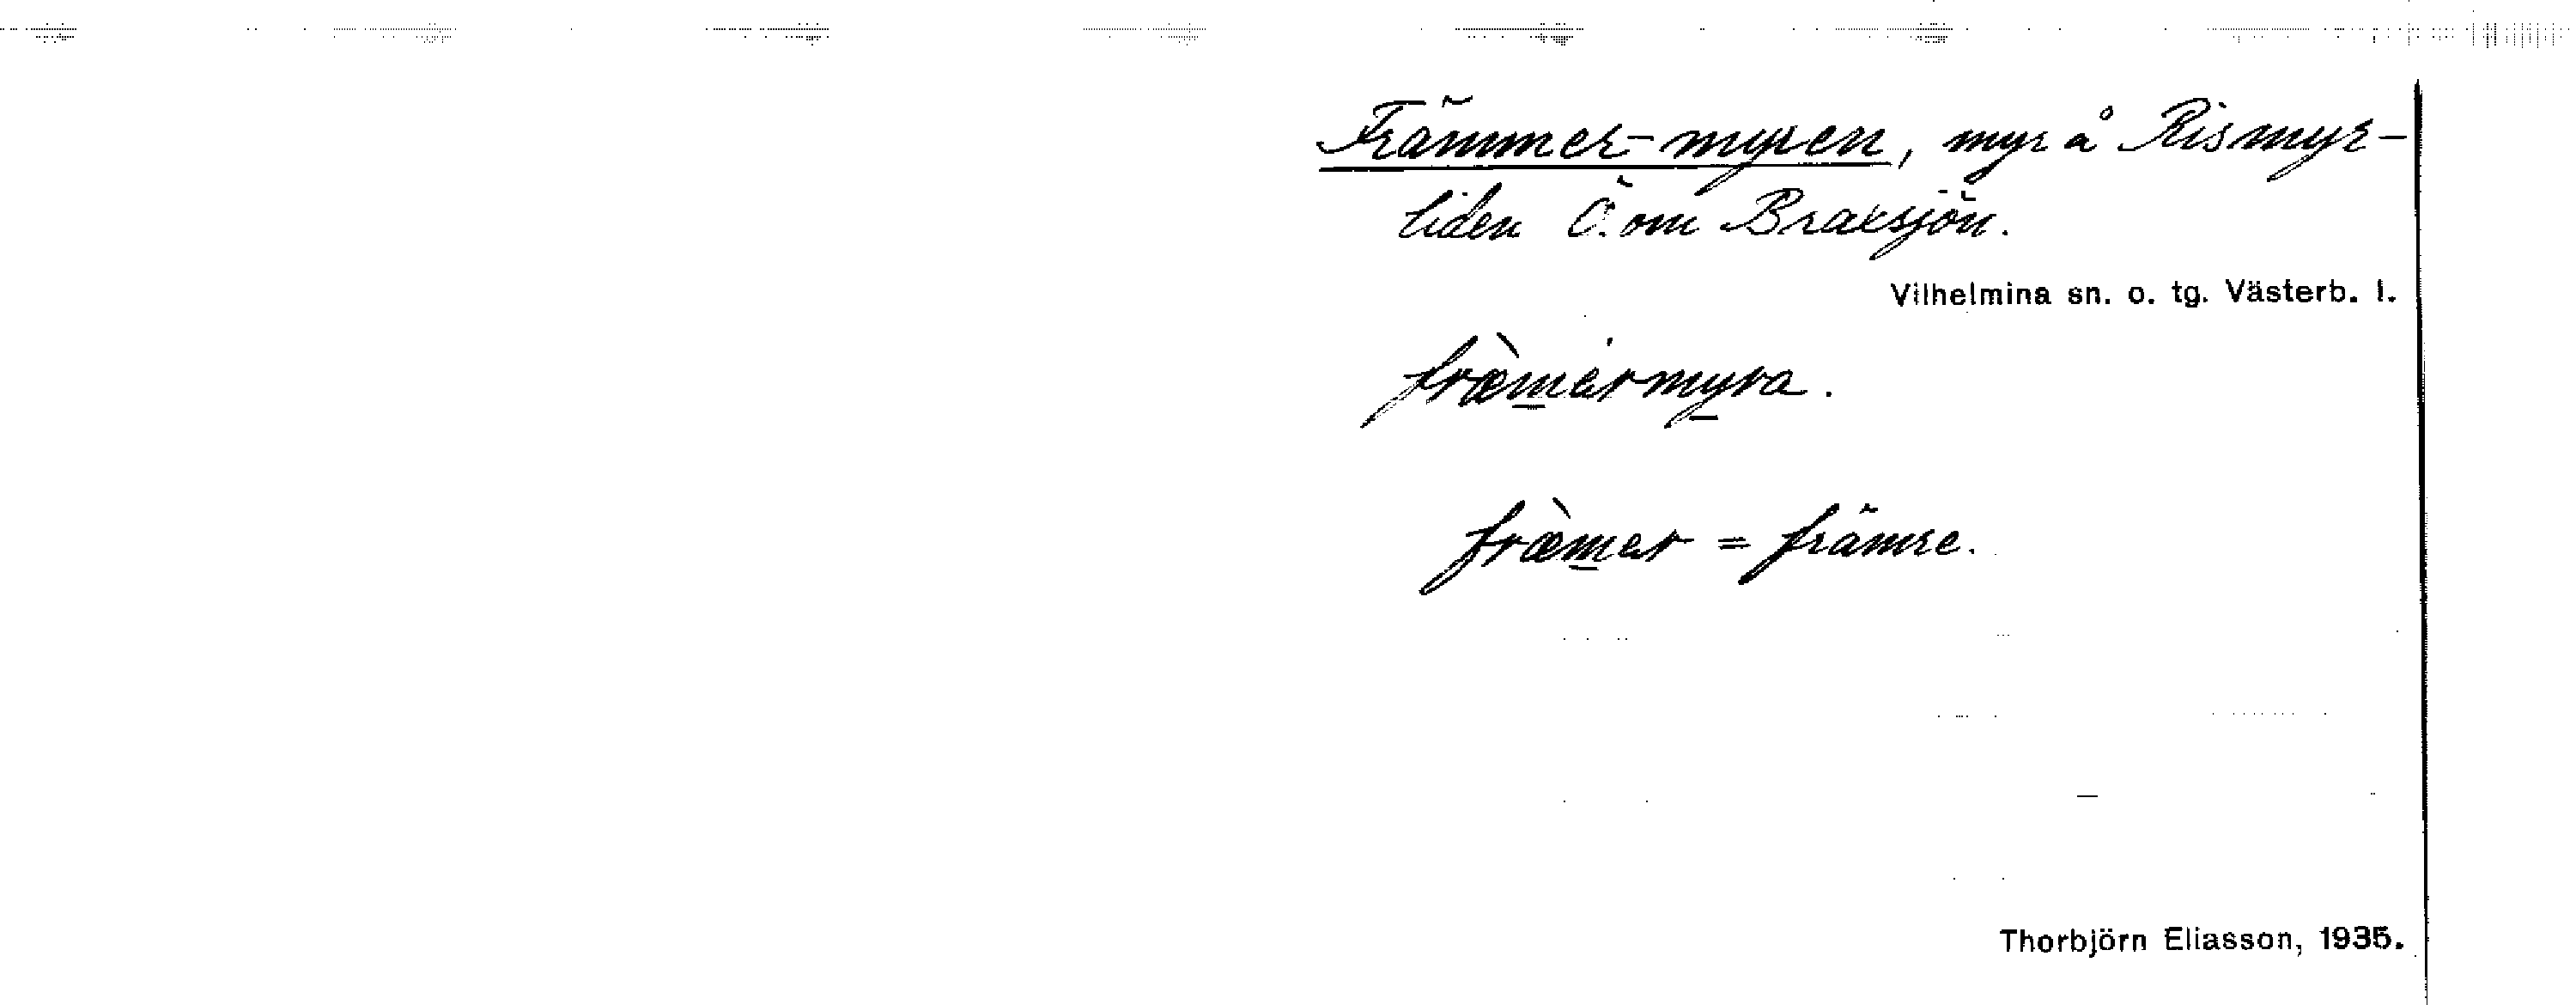 Främmer-myren, myr å Rismyr-
liden Ö. om Braxsjön.
Vilhelmina sn. o. tg. Västerb. l.
fræ̀mermyra.
fræ̀mer = främre.
Thorbjörn Eliasson, 1935.